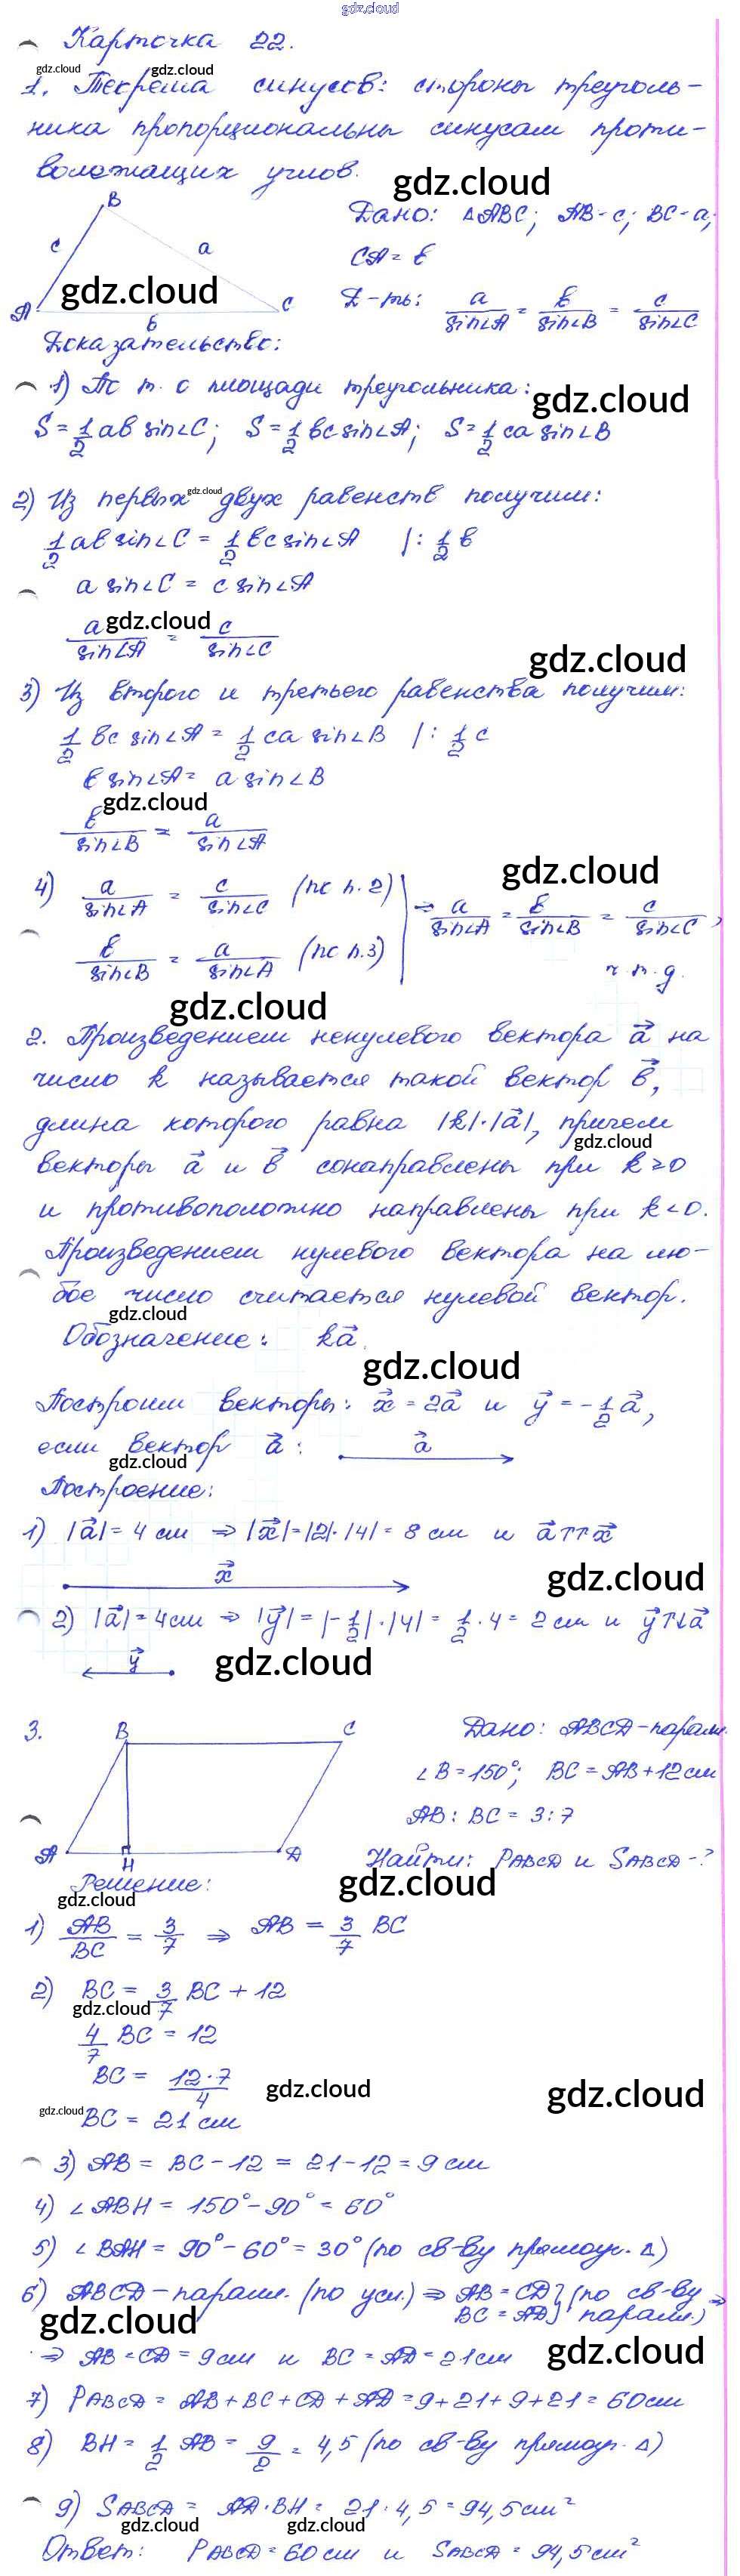 gdz.cloud
Карточка 22.
gdz.cloud gdz.cloud
1. Теорема синусов: стороны треуголь-
ника пропорциональны синусам проти-
волежащих углов.
gdz.cloud
B
Дано: △ABC; AB-c; BC-a;
c a
CA = b
gdz.cloud
A b C
Д-ть: a/sin∠A = b/sin∠B = c/sin∠C
Доказательство:
1) По т. о площади треугольника:
gdz.cloud
S = 1/2 ab sin∠C; S = 1/2 bc sin∠A; S = 1/2 ca sin∠B
2) Из первых двух равенств получим:
gdz.cloud
1/2 ab sin∠C = 1/2 bc sin∠A |: 1/2 b
a sin∠C = c sin∠A
gdz.cloud
a/sin∠A = c/sin∠C
gdz.cloud
3) Из второго и третьего равенства получим:
1/2 bc sin∠A = 1/2 ca sin∠B |: 1/2 c
b sin∠A = a sin∠B
gdz.cloud
b/sin∠B = a/sin∠A
gdz.cloud
4) a/sin∠A = c/sin∠C (по п.2)
b/sin∠B = a/sin∠A (по п.3)
⇒ a/sin∠A = b/sin∠B = c/sin∠C,
ч.т.д.
gdz.cloud
2. Произведением ненулевого вектора a⃗ на
число k называется такой вектор b⃗,
длина которого равна |k|·|a⃗|, причем
gdz.cloud
векторы a⃗ и b⃗ сонаправлены при k≥0
и противоположно направлены при k<0.
Произведением нулевого вектора на лю-
бое число считается нулевой вектор.
gdz.cloud
Обозначение: ka⃗.
gdz.cloud
Построим векторы: x⃗ = 2a⃗ и y⃗ = -1/2 a⃗,
если вектор a⃗: a⃗
gdz.cloud
Построение:
1) |a⃗| = 4 см ⇒ |x⃗| = |2|·|4| = 8 см и a⃗↑↑x⃗
x⃗
gdz.cloud
2) |a⃗| = 4 см ⇒ |y⃗| = |-1/2|·|4| = 1/2 · 4 = 2 см и y⃗↑↓a⃗
y⃗
gdz.cloud
3. B C
Дано: ABCD-парал.
∠B = 150°; BC = AB + 12 см
AB : BC = 3 : 7
A H D
Найти: PABCD и SABCD -?
gdz.cloud
Решение:
gdz.cloud
1) AB/BC = 3/7 ⇒ AB = 3/7 BC
2) BC = 3/7 BC + 12
gdz.cloud
4/7 BC = 12
BC = 12·7/4
gdz.cloud gdz.cloud
gdz.cloud
BC = 21 см
3) AB = BC - 12 = 21 - 12 = 9 см
4) ∠ABH = 150° - 90° = 60°
5) ∠BAH = 90° - 60° = 30° (по св-ву прямоуг. △)
6) ABCD - парал. (по усл.) ⇒ AB = CD } (по св-ву ⇒
BC = AD } парал.)
gdz.cloud gdz.cloud
⇒ AB = CD = 9 см и BC = AD = 21 см
7) PABCD = AB + BC + CD + AD = 9 + 21 + 9 + 21 = 60 см
8) BH = 1/2 AB = 9/2 = 4,5 (по св-ву прямоуг. △)
9) SABCD = AD · BH = 21 · 4,5 = 94,5 см²
gdz.cloud gdz.cloud
Ответ: PABCD = 60 см и SABCD = 94,5 см²